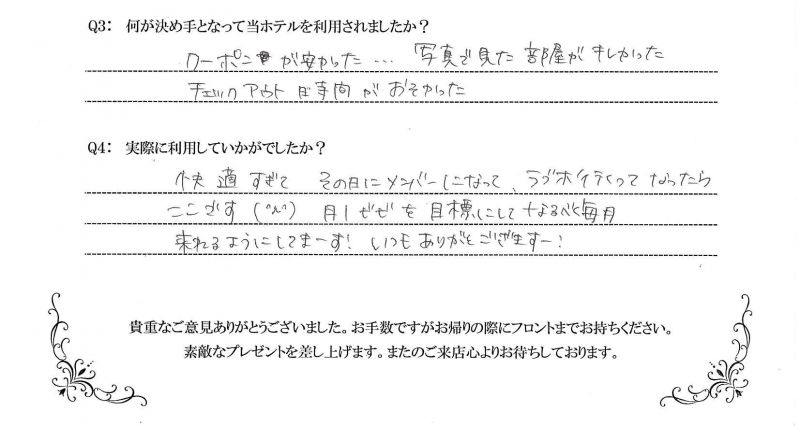 Q3: 何が決め手となって当ホテルを利用されましたか?
クーポンが安かった… 写真で見た部屋がよかった
チェックアウト時間がおそかった
Q4: 実際に利用していかがでしたか?
快適すぎて その日にメンバーになって、ラブホ行くってなったら
ここです (^^) 月1ぜぜを目標にして なるべく毎月
来れるようにしてまーす! いつもありがとございますー!
貴重なご意見ありがとうございました。お手数ですがお帰りの際にフロントまでお持ちください。
素敵なプレゼントを差し上げます。またのご来店心よりお待ちしております。